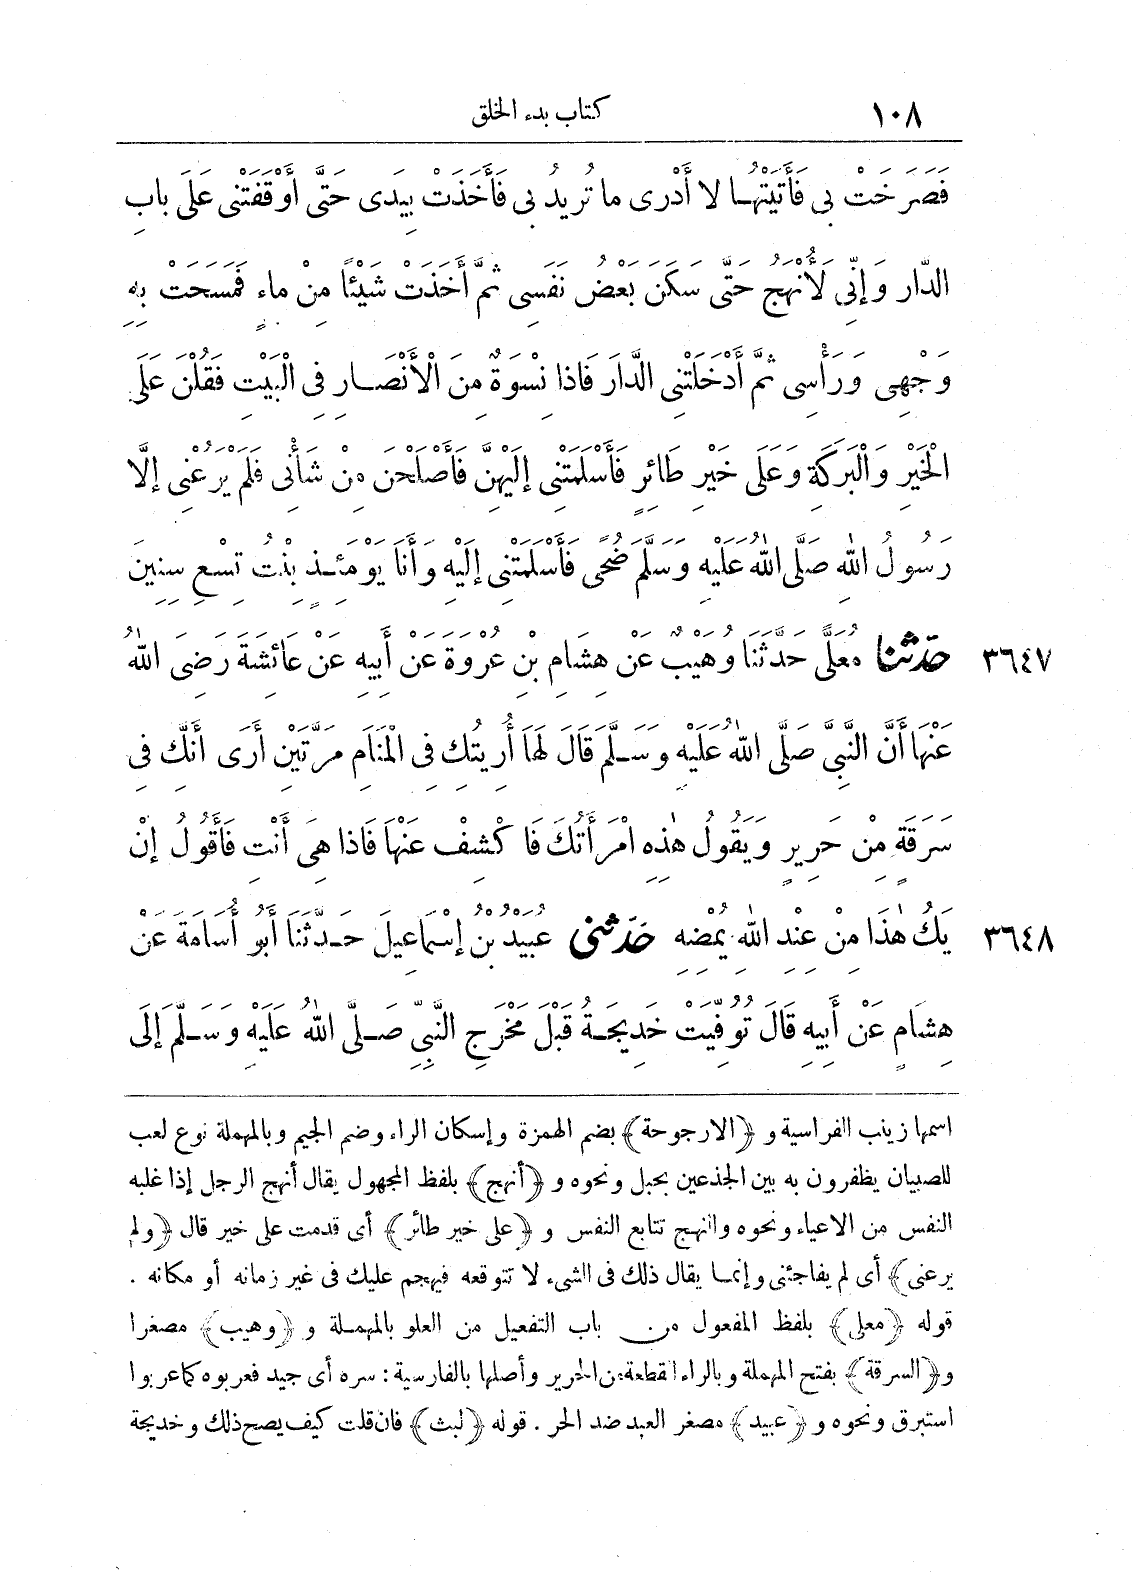 ١٠٨ كتاب بدء الخلق
فَصَرَخَتْ بِى فَأَتَيْتُهَا لَا أَدْرِى مَا تُرِيدُ بِى فَأَخَذَتْ بِيَدِى حَتَّى أَوْقَفَتْنِى عَلَى بَابِ
الدَّارِ وَإِنِّى لَأُنْهَجُ حَتَّى سَكَنَ بَعْضُ نَفَسِى ثُمَّ أَخَذَتْ شَيْئًا مِنْ مَاءٍ فَمَسَحَتْ بِهِ
وَجْهِى وَرَأْسِى ثُمَّ أَدْخَلَتْنِى الدَّارَ فَاذَا نِسْوَةٌ مِنَ الْأَنْصَارِ فِى الْبَيْتِ فَقُلْنَ عَلَى
الْخَيْرِ وَالْبَرَكَةِ وَعَلَى خَيْرِ طَائِرٍ فَأَسْلَمَتْنِى إِلَيْهِنَّ فَأَصْلَحْنَ مِنْ شَأْنِى فَلَمْ يَرُعْنِى إِلَّا
رَسُولُ اللهِ صَلَّى اللهُ عَلَيْهِ وَسَلَّمَ ضُحًى فَأَسْلَمَتْنِى إِلَيْهِ وَأَنَا يَوْمَئِذٍ بِنْتُ تِسْعِ سِنِينَ
٣٦٤٧ حَدَّثَنَا مُعَلًّى حَدَّثَنَا وُهَيْبٌ عَنْ هِشَامِ بْنِ عُرْوَةَ عَنْ أَبِيهِ عَنْ عَائِشَةَ رَضِىَ اللهُ
عَنْهَا أَنَّ النَّبِىَّ صَلَّى اللهُ عَلَيْهِ وَسَلَّمَ قَالَ لَهَا أُرِيتُكِ فِى الْمَنَامِ مَرَّتَيْنِ أَرَى أَنَّكِ فِى
سَرَقَةٍ مِنْ حَرِيرٍ وَيَقُولُ هٰذِهِ امْرَأَتُكَ فَاكْشِفْ عَنْهَا فَاذَا هِىَ أَنْتِ فَأَقُولُ إِنْ
يَكُ هٰذَا مِنْ عِنْدِ اللهِ يُمْضِهِ
٣٦٤٨ حَدَّثَنِى عُبَيْدُ بْنُ إِسْمَاعِيلَ حَدَّثَنَا أَبُو أُسَامَةَ عَنْ
هِشَامٍ عَنْ أَبِيهِ قَالَ تُوُفِّيَتْ خَدِيجَةُ قَبْلَ مَخْرَجِ النَّبِىِّ صَلَّى اللهُ عَلَيْهِ وَسَلَّمَ إِلَى
اسمها زينب الفراسية و ﴿الارجوحة﴾ بضم الهمزة وإسكان الراء وضم الجيم وبالمهملة نوع لعب
للصبيان يظفرون به بين الجذعين بحبل ونحوه و ﴿أنهج﴾ بلفظ المجهول يقال أنهج الرجل إذا غلبه
النفس من الاعياء ونحوه والنهج تتابع النفس و ﴿على خير طائر﴾ أى قدمت على خير قال ﴿ولم
يرعنى﴾ أى لم يفاجئنى وإنما يقال ذلك فى الشىء لا تتوقعه فيهجم عليك فى غير زمانه أو مكانه .
قوله ﴿معلى﴾ بلفظ المفعول من باب التفعيل من العلو بالمهملة و ﴿وهيب﴾ مصغرا
و﴿السرقة﴾ بفتح المهملة وبالراء القطعة من الحرير وأصلها بالفارسية: سره أى جيد فعربوه كما عربوا
استبرق ونحوه و ﴿عبيد﴾ مصغر العبد ضد الحر . قوله ﴿لبث﴾ فان قلت كيف يصح ذلك وخديجة